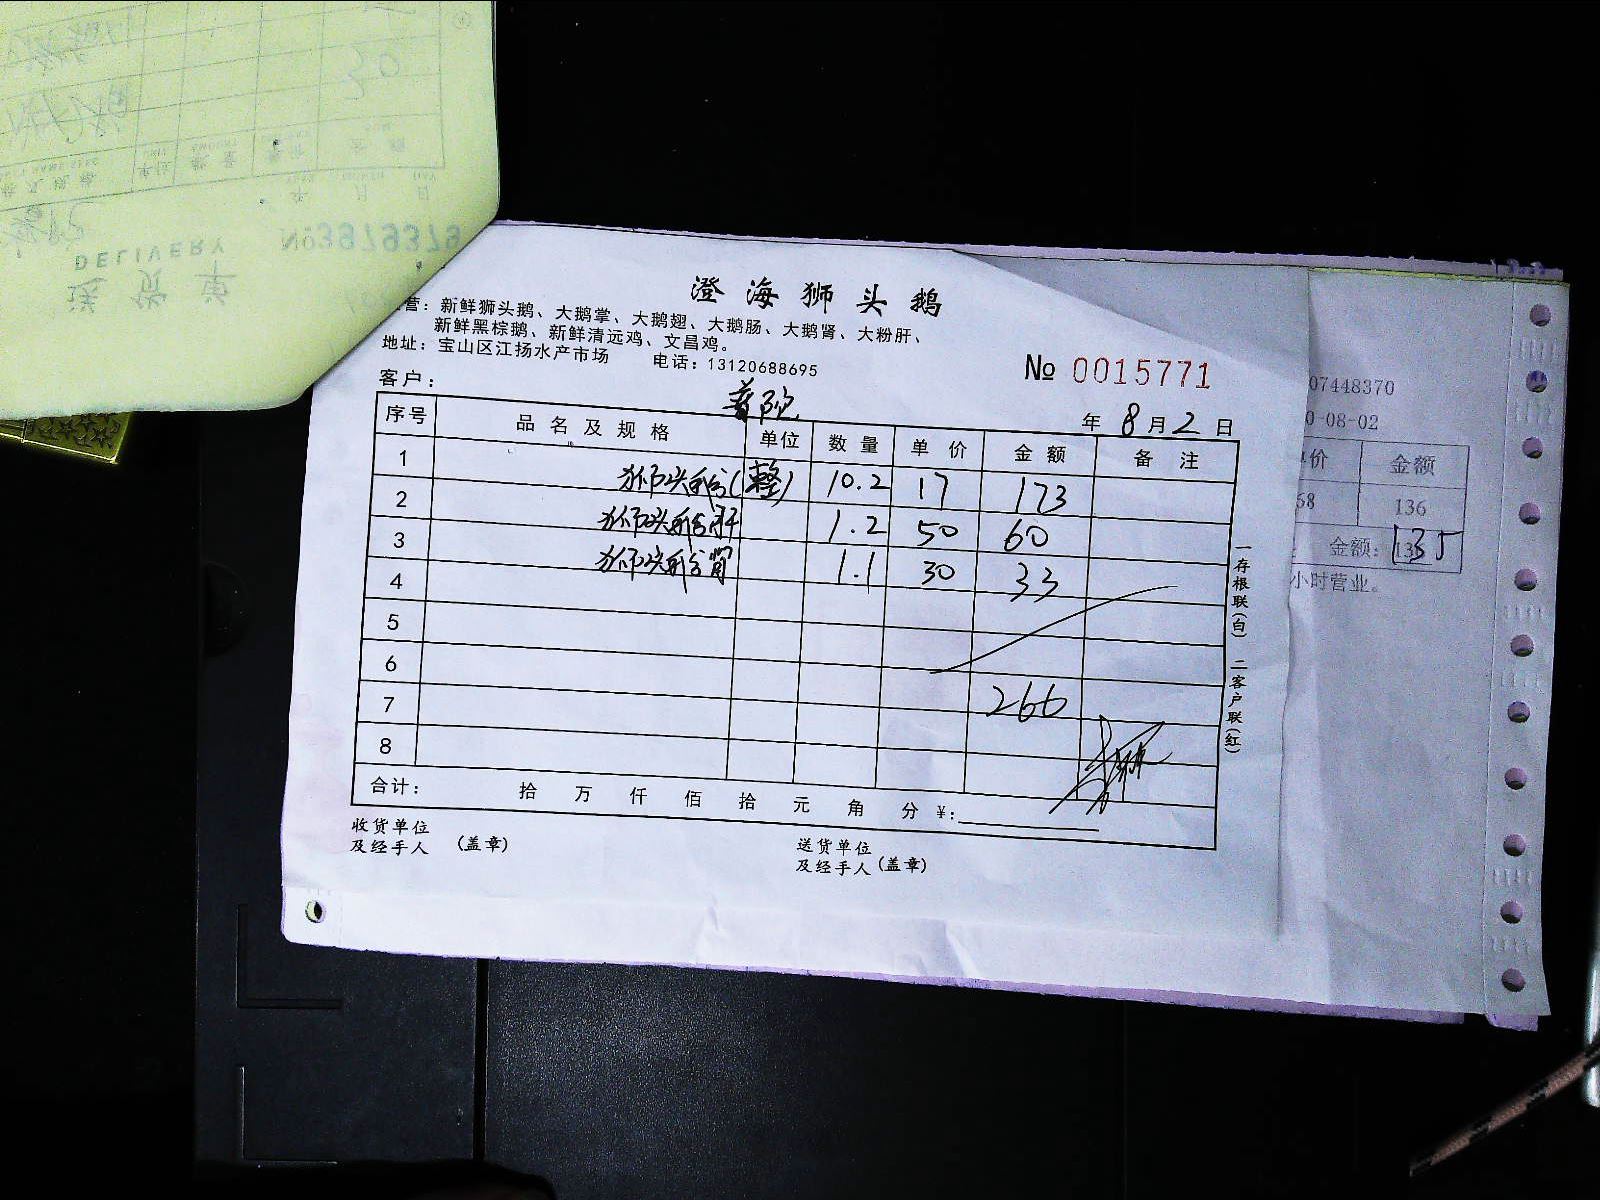 澄海狮头鹅
营：新鲜狮头鹅、大鹅掌、大鹅翅、大鹅肠、大鹅肾、大粉肝、
新鲜黑棕鹅、新鲜清远鸡、文昌鸡。
地址：宝山区江扬水产市场 电话：13120688695
№ 0015771
客户： 普陀 年 8 月 2 日
序号 品名及规格 单位 数量 单价 金额 备注
1 狮头鹅(整) 10.2 17 173
2 狮头鹅肝 1.2 50 60
3 狮头鹅肾 1.1 30 33
4
5
6
7 266
8
合计： 拾 万 仟 佰 拾 元 角 分 ¥:
收货单位
及经手人 (盖章)
送货单位
及经手人 (盖章)
一存根联(白) 二客户联(红)
07448370
0-08-02
单价 金额
68 136
金额: 135
小时营业。
送货单
DELIVERY
№3979379
年 月 日
金额
数量
单位
30